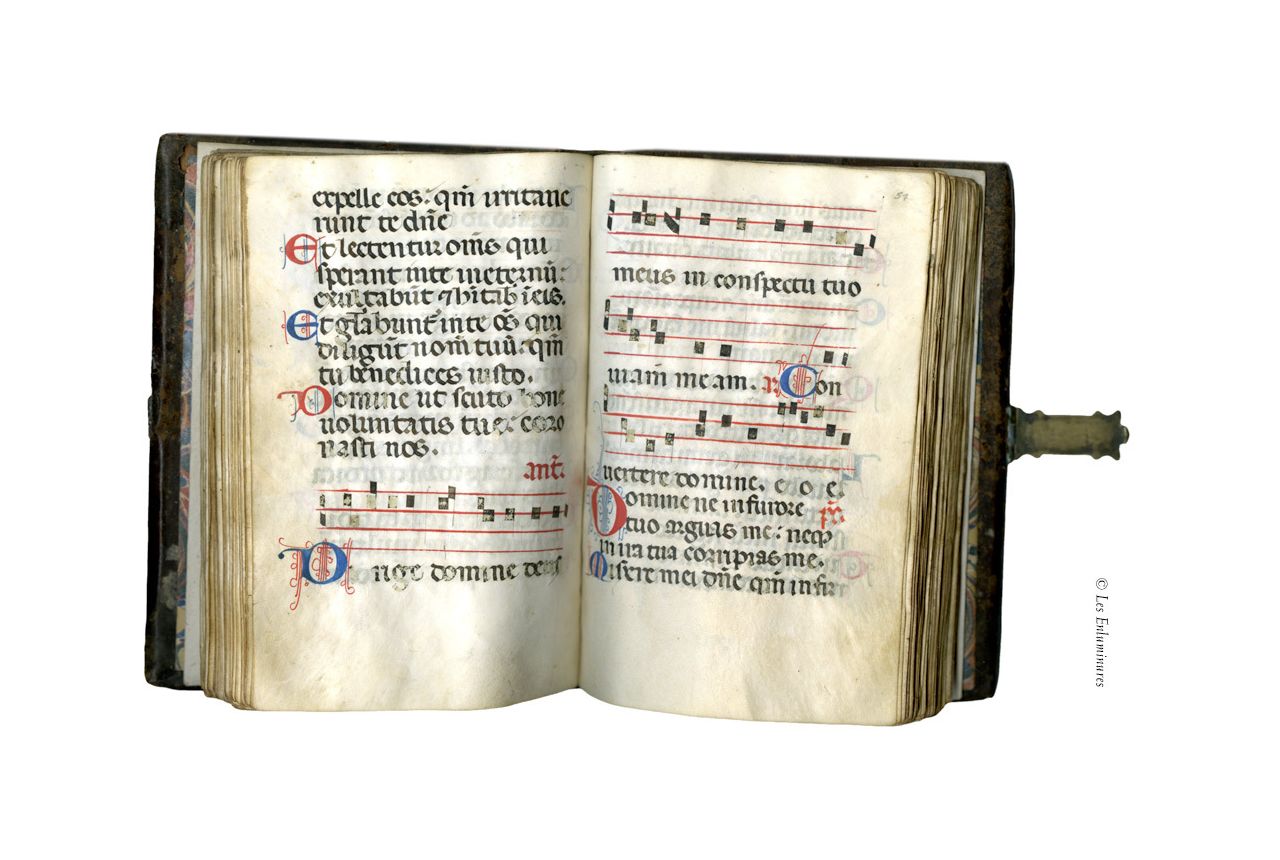 expelle eos. qm̄ irritaue
runt te dn̄e
Et lectentur om̄s qui
sperant inte ineternū:
exultabūt ⁊ hītab' ī eis.
Et gl̄abunt' inte oēs qui
diligūt nom̄ tuū: qm̄
tu benedices iusto.
Domine ut scuto bone
uoluntatis tue: coro
nasti nos.
ant̄.
Dirige domine deus
51
meus in conspectu tuo
uiam meam. Con
uertere domine. e o e.
Domine ne infurore ps̄.
tuo arguas me: neqꝫ
in ira tua corripias me.
Misere mei dn̄e qm̄ infir
© Les Enluminures